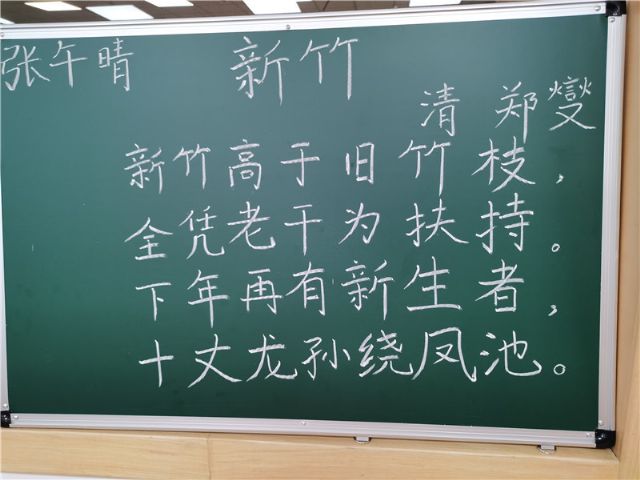 张午晴 新竹
清 郑燮
新竹高于旧竹枝，
全凭老干为扶持。
下年再有新生者，
十丈龙孙绕凤池。